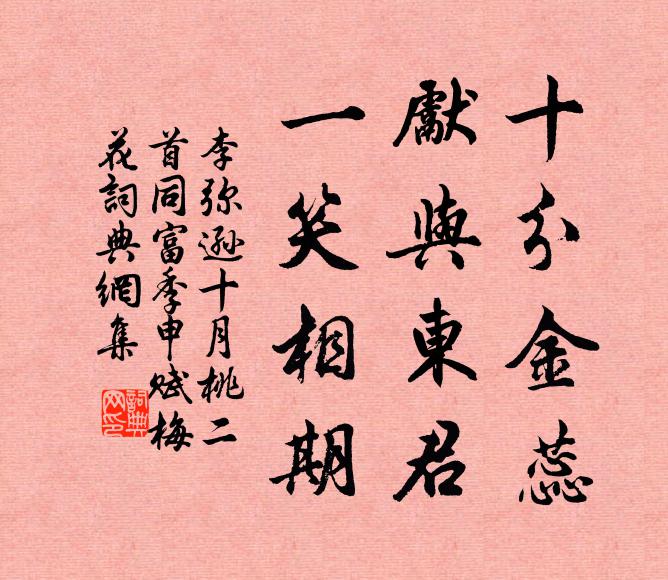 十分金蕊
獻與東君
一笑相期
李弥遜十月桃二
首同富季申賦梅
花詞典網集
詞典網印